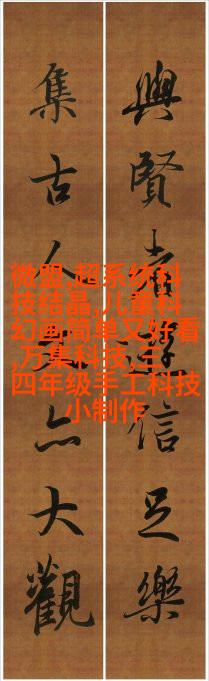 與賢者遊信足樂
集古人文亦大觀
微盟,超系统科
技结晶,儿童科
幻画简单又好看
,万集科技,三
四年级手工科技
小制作